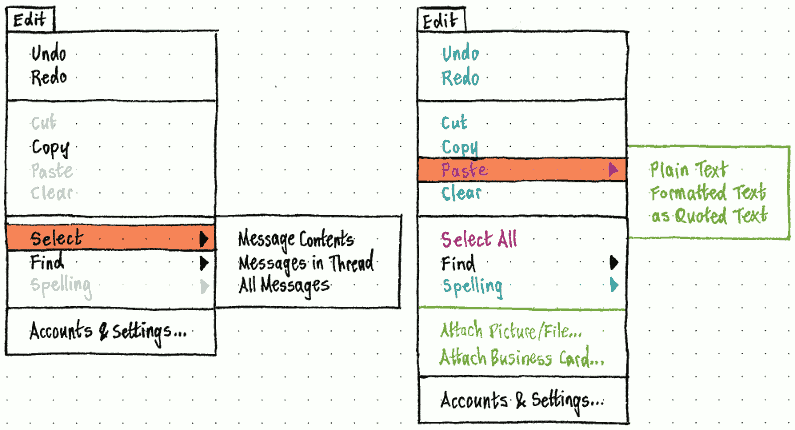 Edit
Undo
Redo
Cut
Copy
Paste
Clear
Select
Find
Spelling
Accounts & Settings...
Message Contents
Messages in Thread
All Messages
Edit
Undo
Redo
Cut
Copy
Paste
Clear
Select All
Find
Spelling
Attach Picture/File...
Attach Business Card...
Accounts & Settings...
Plain Text
Formatted Text
as Quoted Text